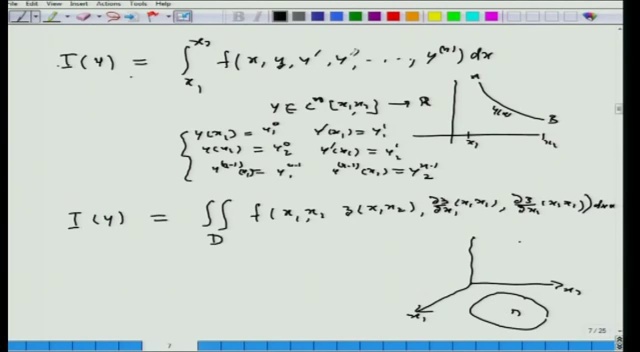 File Edit View Insert Actions Tools Help
I(y) = ∫_{x_1}^{x_2} f(x, y, y', y'', ..., y^{(n)}) dx
y ∈ C^n [x_1, x_2] → R
A
B
y(x)
x_1 x_2
y(x_1) = y_1^0 y'(x_1) = y_1'
y(x_2) = y_2^0 y'(x_2) = y_2'
y^{(n-1)}(x_1) = y_1^{n-1} y^{(n-1)}(x_2) = y_2^{n-1}
I(y) = ∬_D f(x_1, x_2 z(x_1 x_2), ∂z/∂x_1 (x_1 x_2),
x_2
x_1
D
7 / 25
7